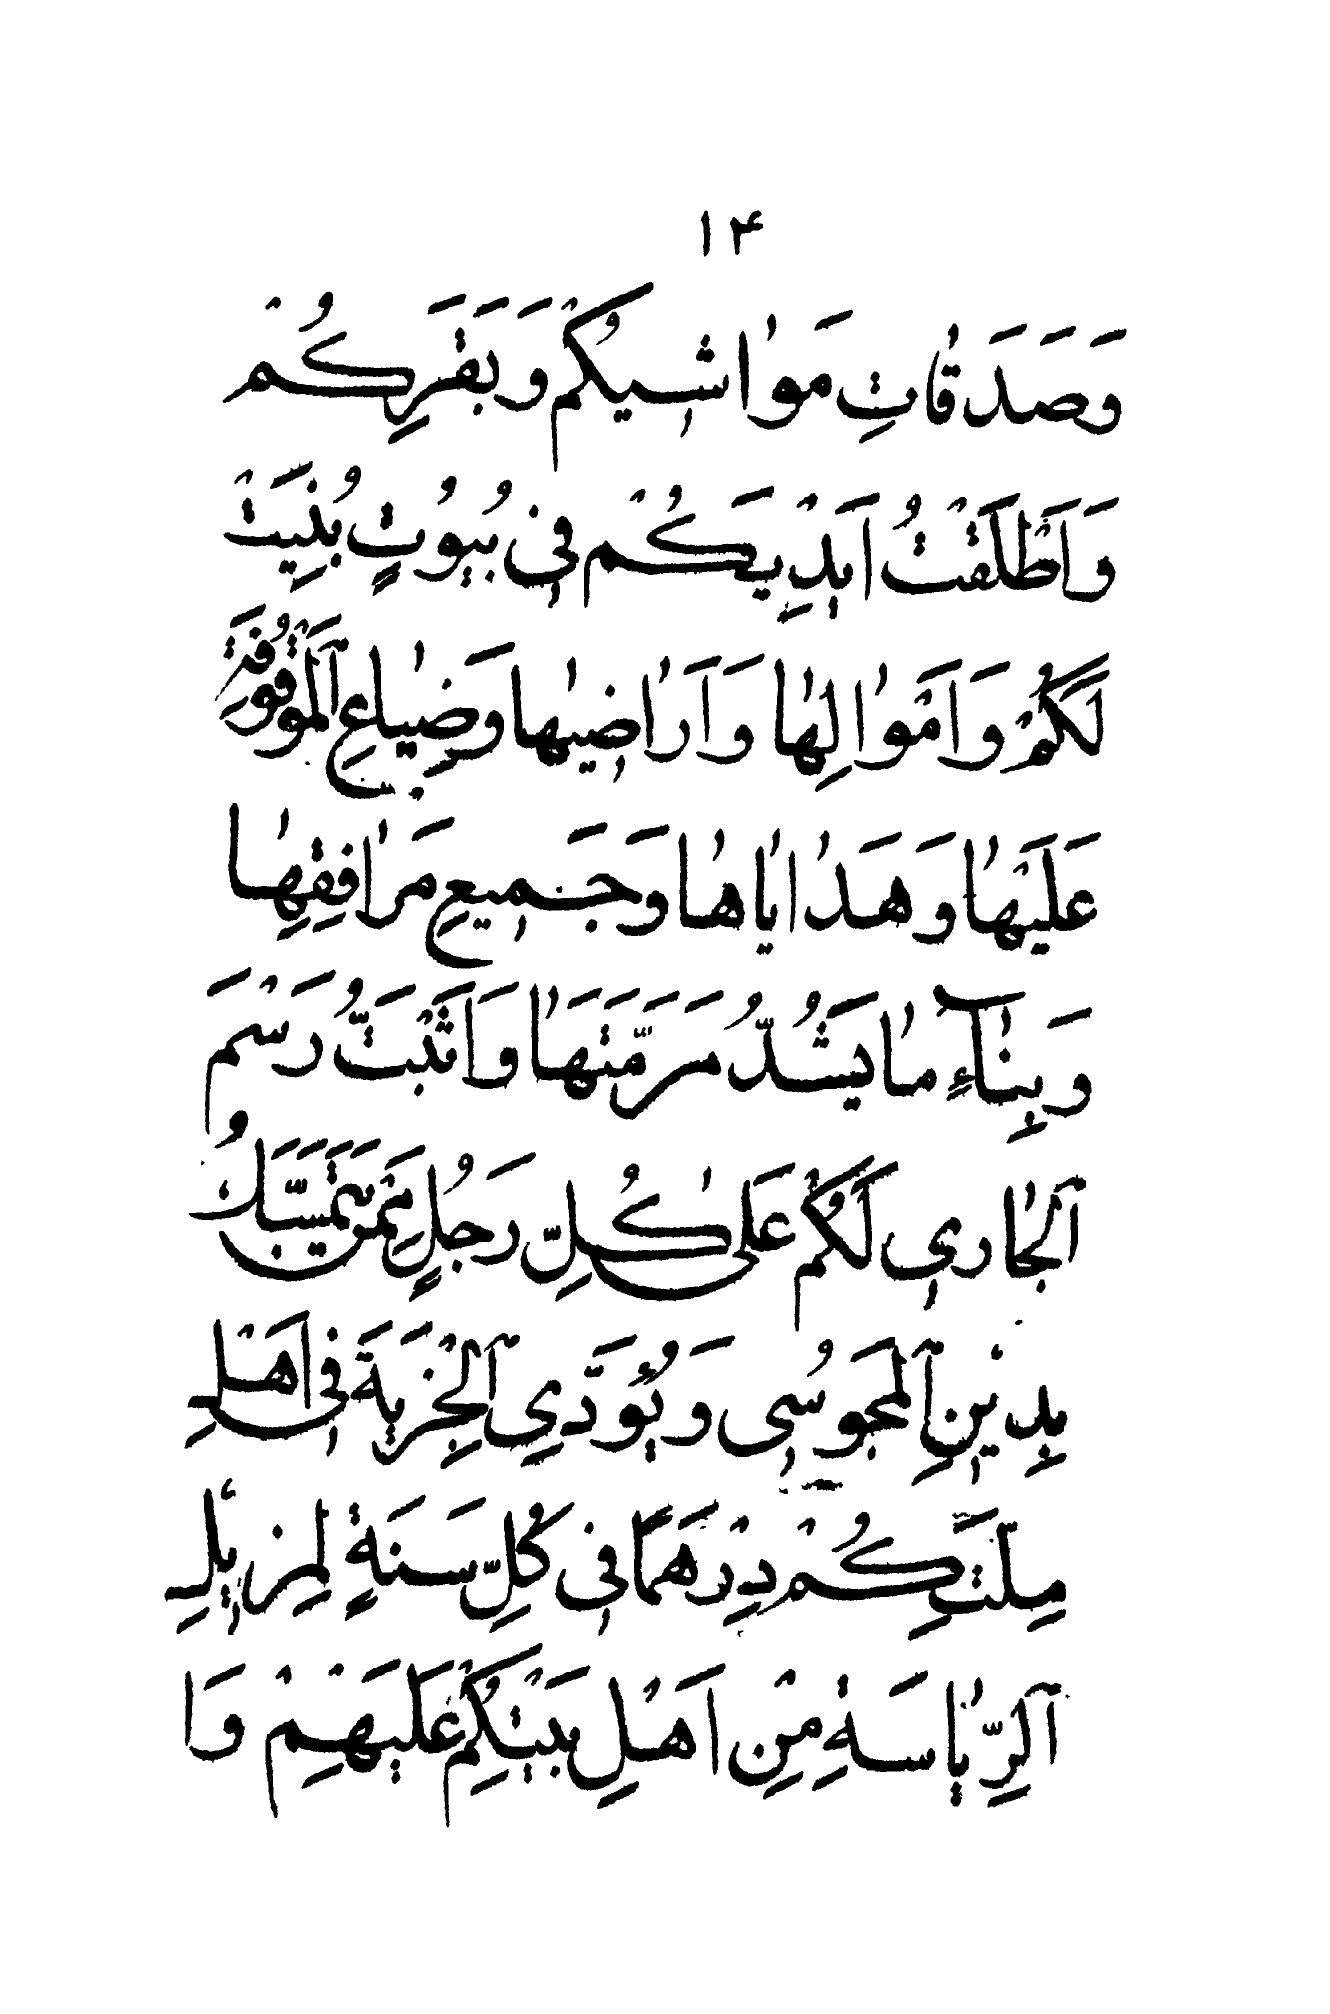 ۱۴
وَصَدَقاتِ مَوَاشيكُمْ وَبَقَرِكُمْ
وَاَطْلَقْتُ اَيْدِيَكُمْ في بُيُوتٍ بُنِيَتْ
لَكُمْ وَاَمْوَالِهَا وَاَرَاضيهَا وَضِيَاعِ الْمَوْقُوفَةِ
عَلَيْهَا وَهَدَايَاهَا وَجَميعِ مَرَافِقِهَا
وَبِنَاءِ مَا يَشُدُّ مَرَمَّتَهَا وَاَثْبَتُّ رَسْمَ
الْجَاري لَكُمْ عَلَى كُلِّ رَجُلٍ مِمَّنْ يَتَمَسَّكُ
بِدينِ الْمَجُوسي وَيُؤَدِّي الْجِزْيَةَ في اَهْلِ
مِلَّتِكُمْ دِرْهَمًا في كُلِّ سَنَةٍ لِمَنْ يَلِي
الرِّيَاسَةِ مِنْ اَهْلِ بَيْتِكُمْ عَلَيْهِمْ وَا